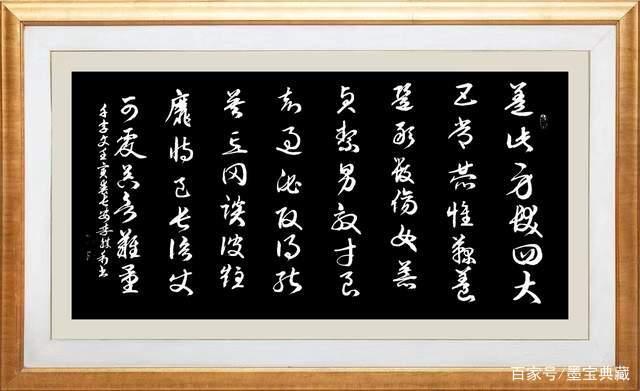 蓋此身髮四大
五常恭惟鞠養
豈敢毀傷女慕
貞絜男效才良
知過必改得能
莫忘罔談彼短
靡恃己長信使
可覆器欲難量
千字文壬寅
百家号/墨宝典藏